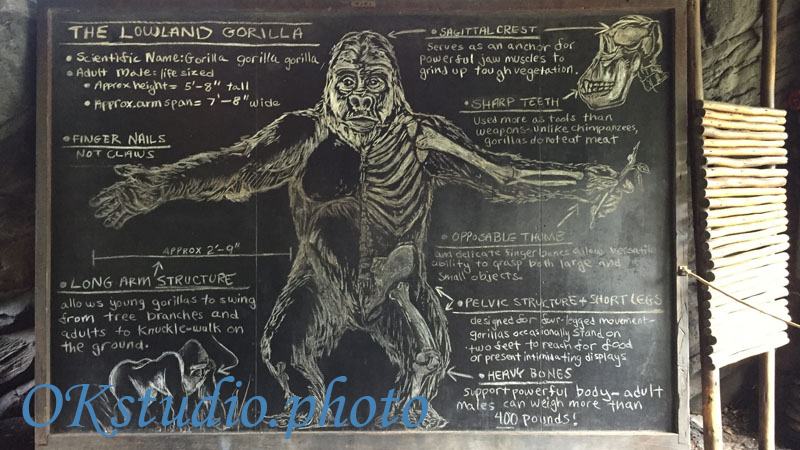 THE LOWLAND GORILLA
• Scientific Name: Gorilla gorilla gorilla
• Adult Male: life sized
• Approx height = 5'-8" tall
• Approx. arm span = 7'-8" wide
• FINGER NAILS
NOT CLAWS
APPROX 2'-9"
• LONG ARM STRUCTURE
allows young gorillas to swing
from tree branches and
adults to knuckle-walk on
the ground.
• SAGITTAL CREST
Serves as an anchor for
powerful jaw muscles to
grind up tough vegetation.
• SHARP TEETH
Used more as tools than
weapons-unlike chimpanzees,
gorillas do not eat meat
• OPPOSABLE THUMB
and delicate finger bones allow versatile
ability to grasp both large and
small objects.
• PELVIC STRUCTURE + SHORT LEGS
designed for four-legged movement-
gorillas occasionally stand on
two feet to reach for food
or present intimidating displays
• HEAVY BONES
support powerful body - adult
males can weigh more than
400 pounds!
OKstudio.photo